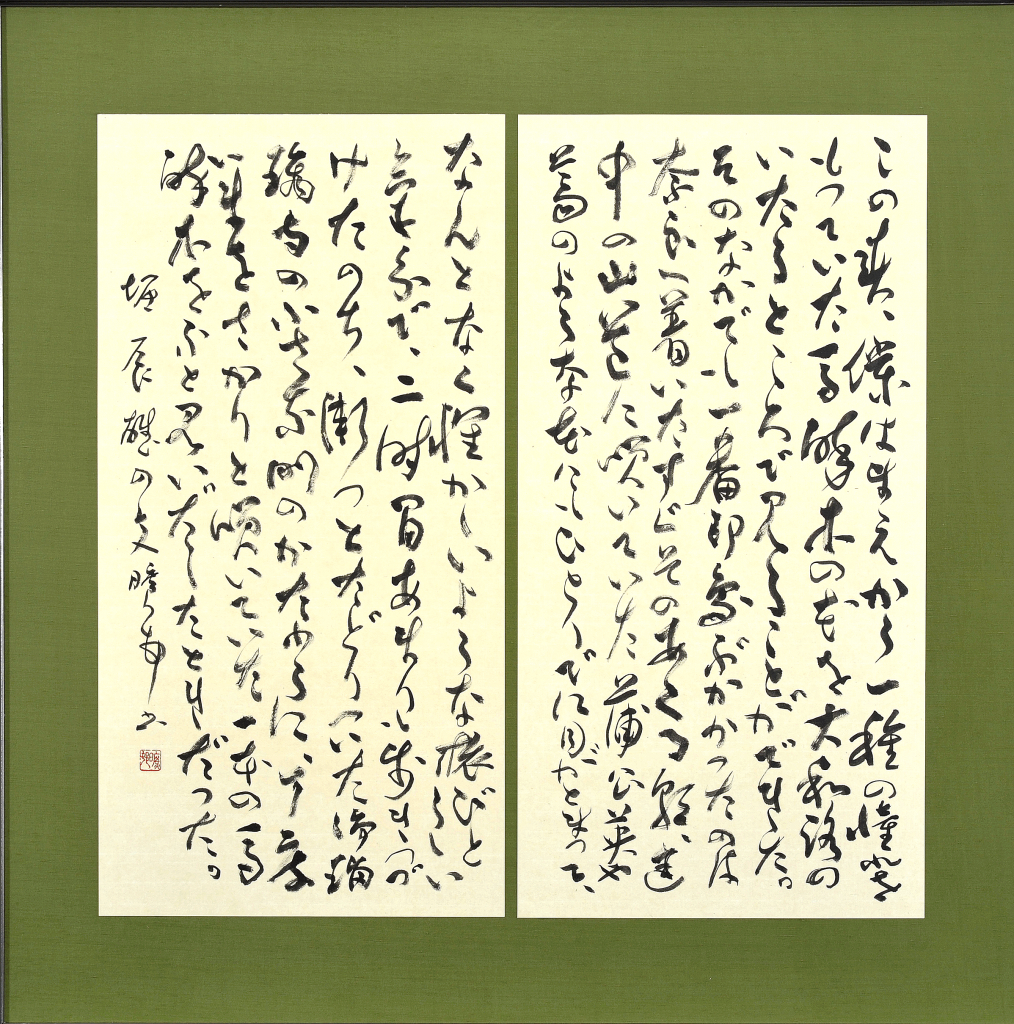 この春、僕はまえから一種の憧れを
もっていた馬酔木の花を大和路の
いたるところで見ることができた。
そのなかでも一番印象ぶかかったのは
奈良へ着いたすぐそのあくる朝、途
中の山道に咲いていた蒲公英や
薺のような花にもひとりでに目がとまって、
なんとなく懐かしいような旅びとらしい
気分で、二時間あまりも歩きつづ
けたのち、漸っとたどりついた浄瑠
璃寺の小さな門のかたわらに、丁度
いまをさかりと咲いていた一本の馬
酔木をふと見いだしたときだった。
堀辰雄の文 書